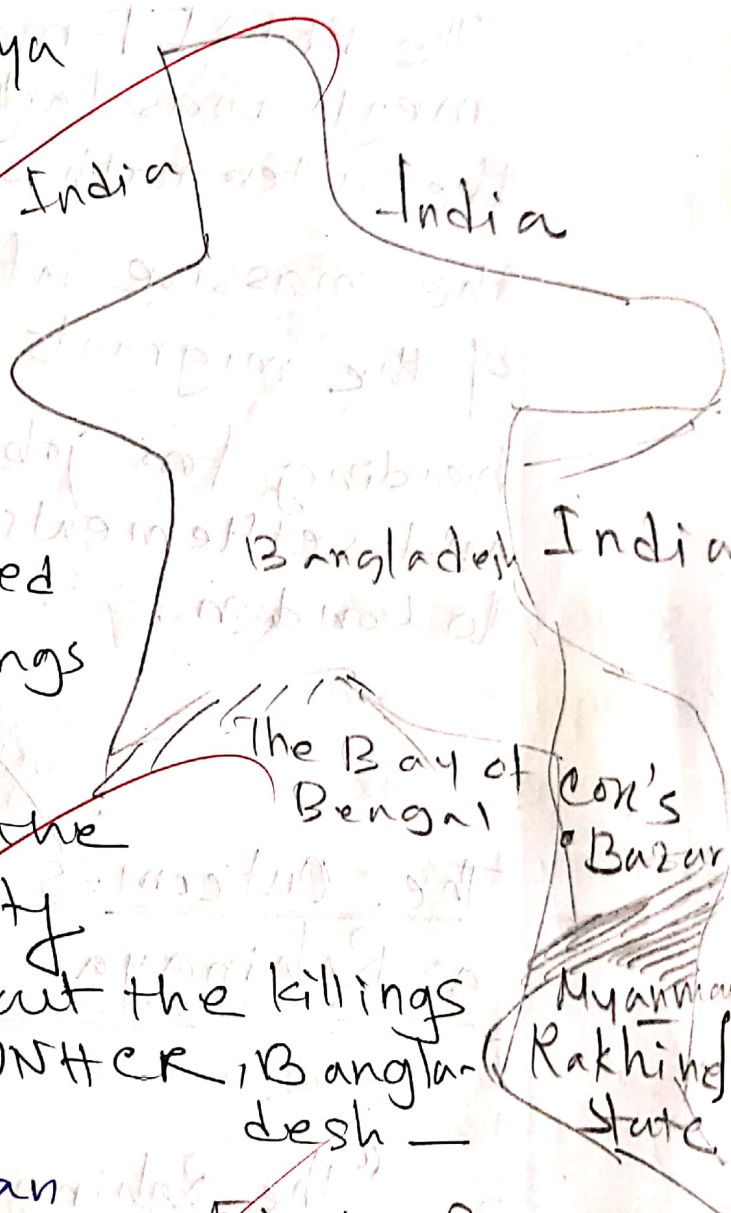 ya
India
India
Bangladesh India
ed
ngs
The Bay of
Bengal
Cox's
Bazar
the
ty
out the killings
UNHCR, Bangla-
desh —
Myanma
Rakhine
State
an